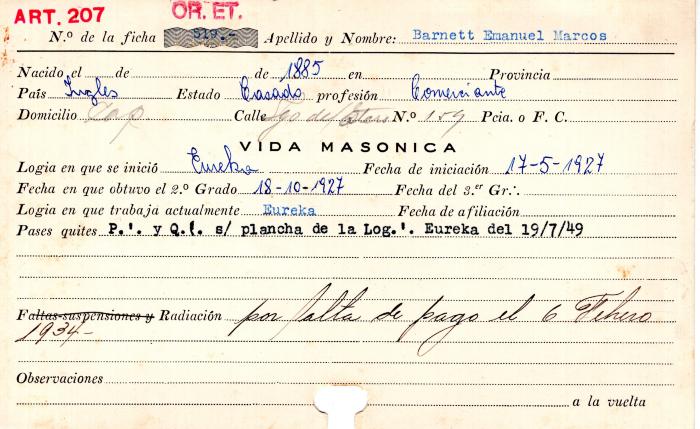 ART. 207
OR. ET.
N.º de la ficha 519.- Apellido y Nombre: Barnett Emanuel Marcos
Nacido el de de 1885 en Provincia
País Ingles Estado Casado profesión Comerciante
Domicilio Cap. Calle N.º 159 Pcia. o F. C.
VIDA MASONICA
Logia en que se inició Eureka Fecha de iniciación 17-5-1927
Fecha en que obtuvo el 2.º Grado 18-10-1927 Fecha del 3.er Gr∴
Logia en que trabaja actualmente Eureka Fecha de afiliación
Pases quites P.'. y Q.(. s/ plancha de la Log.'. Eureka del 19/7/49
Faltas-suspensiones y Radiación por falta de pago el 6 Febero
1934-
Observaciones
a la vuelta